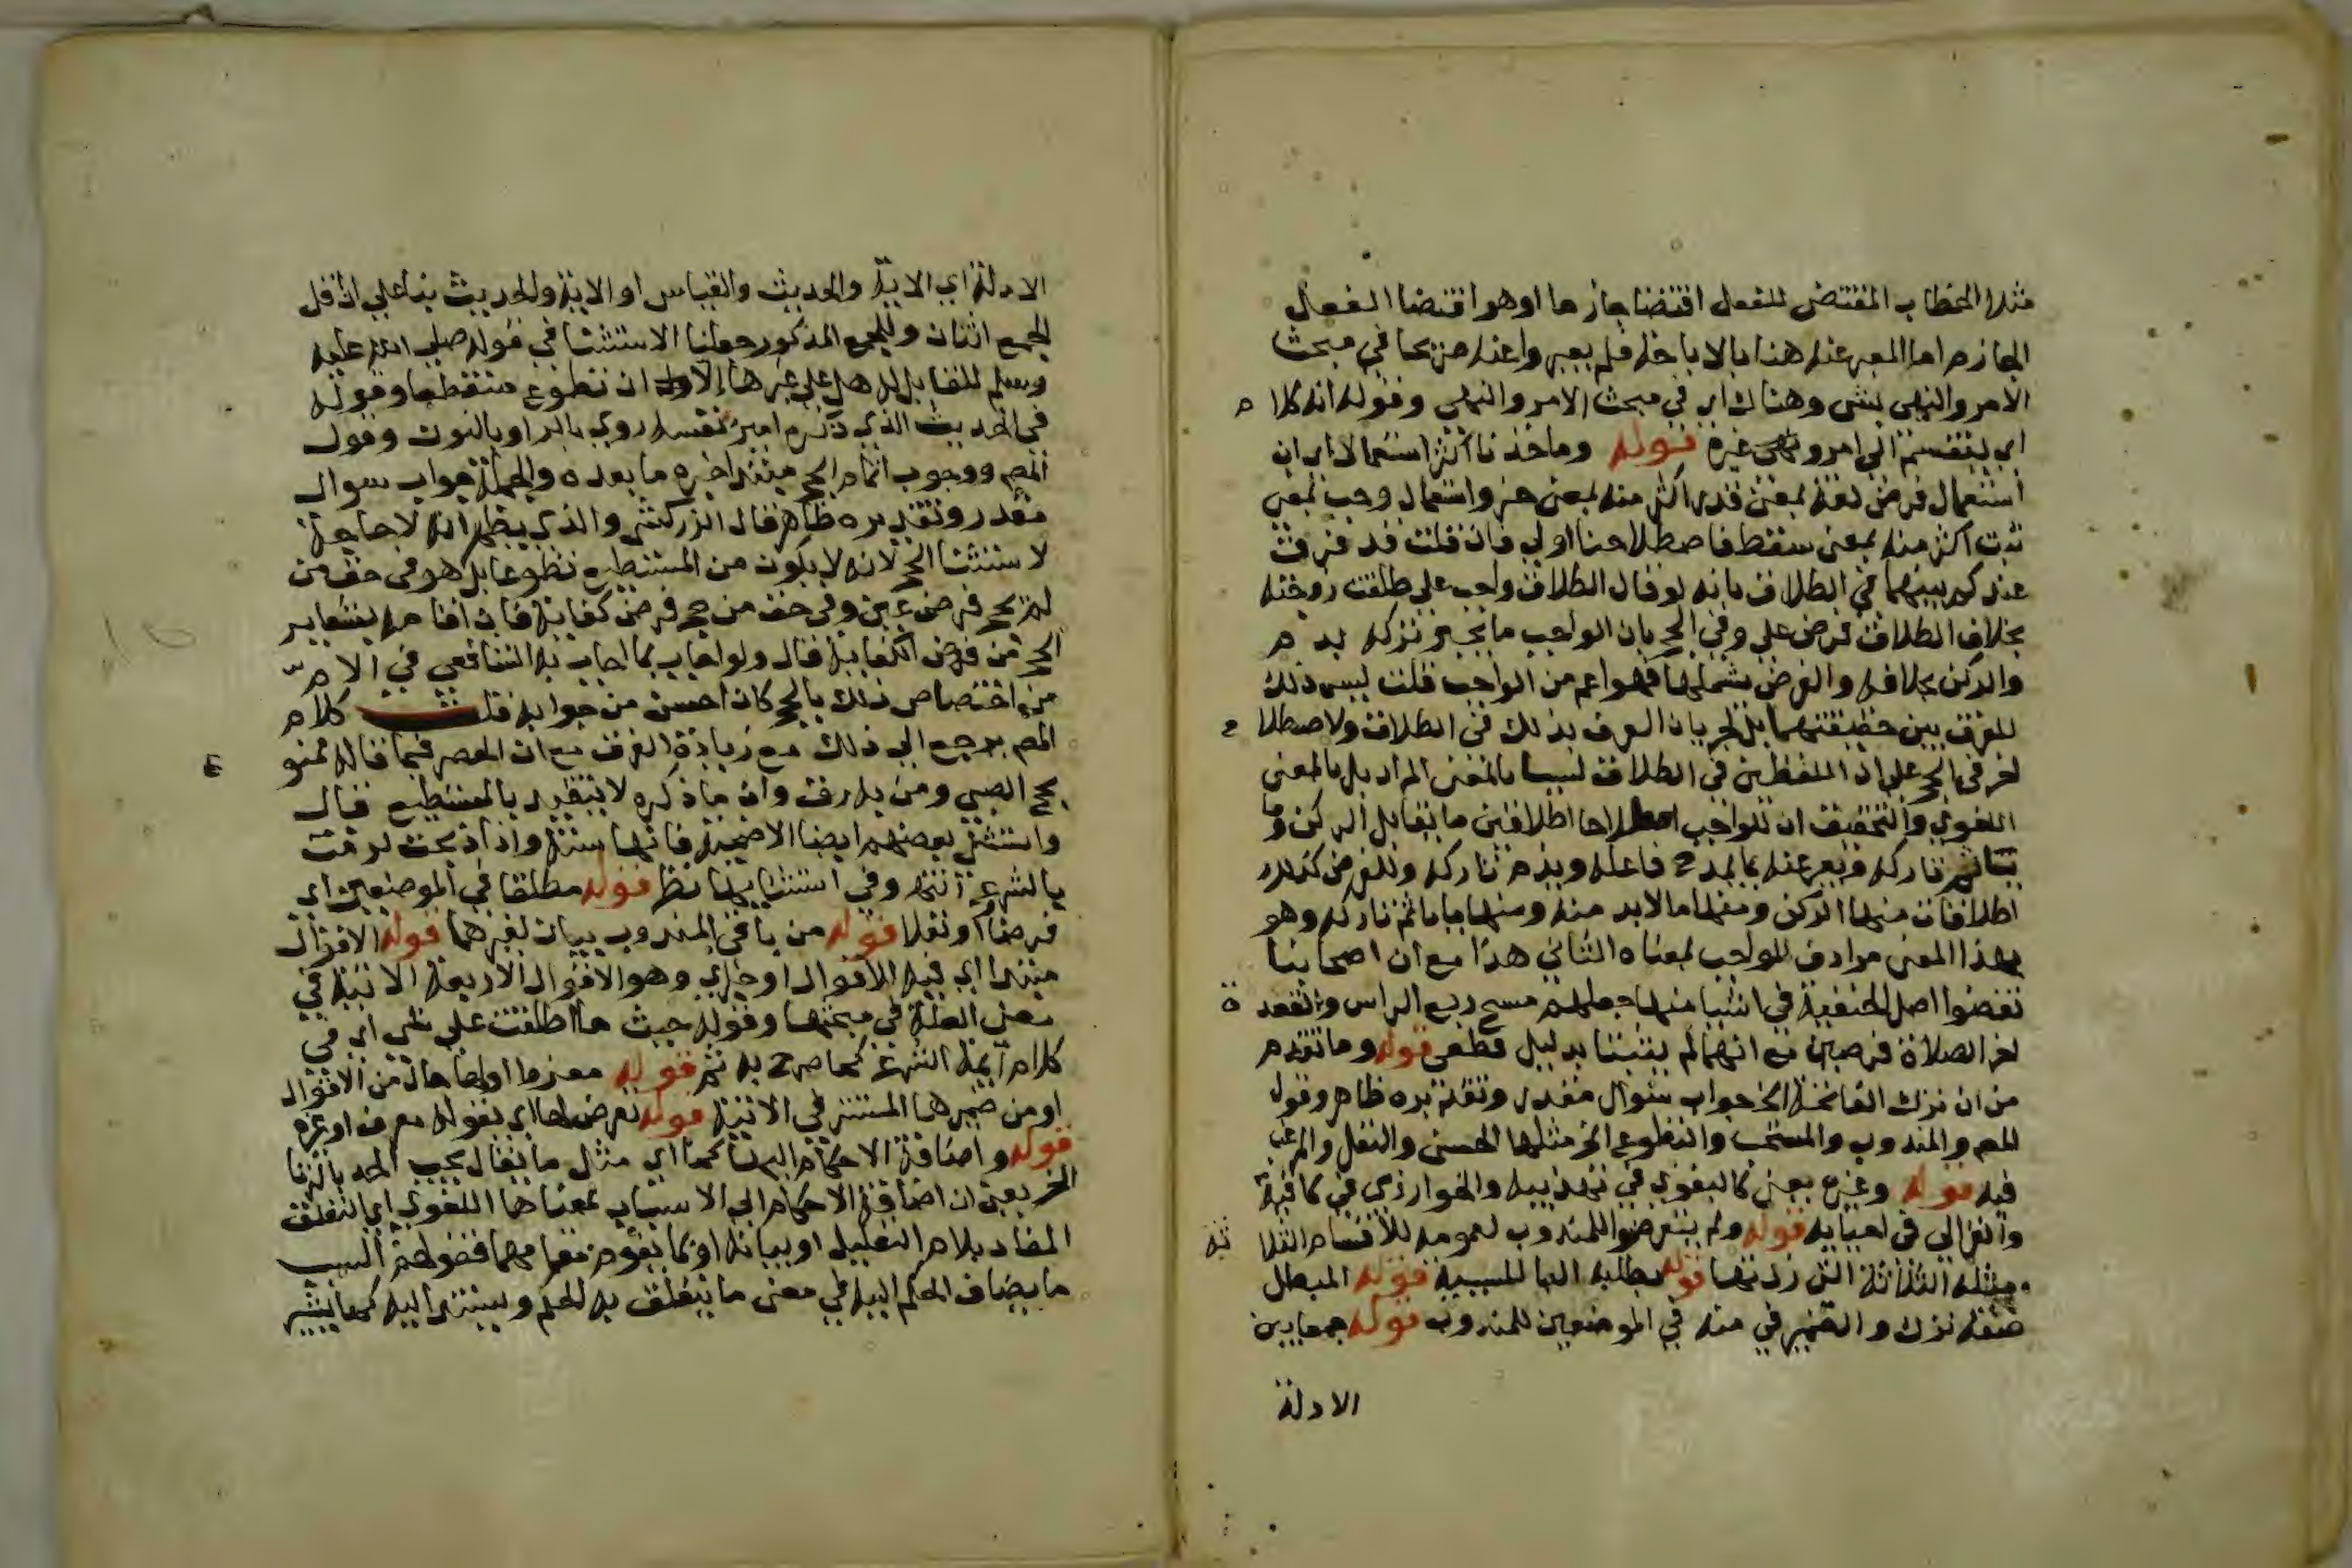 مثلا الخطاب المقتضي للفعل اقتضا جازما او هو اقتضا الفعل
الجازم اما المعبر عنه هنا بالاباحة فلم يعبروا عنه صريحا في مبحث
الامر والنهي بشي وهناك اي في مبحث الامر والنهي وقوله انه كلام
اي ينقسم الى امر ونهي وغيره قوله وماخذنا اكثر استعمالا اي ان
استعمال فرض لغة بمعنى قدر اكثر منه بمعنى حز واستعمال وجب بمعنى
ثبت اكثر منه بمعنى سقط فاصطلاحنا اولى فان قلت قد فرقت
عندكم بينهما في الطلاق بانه لو قال الطلاق واجب علي طلقت زوجته
بخلاف الطلاق فرض علي وفي الحج بان الواجب ما يجبر تركه بدم
والركن بخلافه والفرض يشملهما فهو اعم من الواجب قلت ليس ذلك
للفرق بين حقيقتهما بل لجريان العرف بذلك في الطلاق ولاصطلاح
اخر في الحج على ان اللفظين في الطلاق ليسا بالمعنى المراد بل بالمعنى
اللغوي والتحقيق ان للواجب اصطلاحا اطلاقين ما يقابل الركن وما
ياثم تاركه ويعبر عنه بما يمدح فاعله ويذم تاركه وللفرض كذلك
اطلاقات منها الركن ومنها ما لا بد منه ومنها ما ياثم تاركه وهو
بهذا المعنى مرادف للواجب بمعناه الثاني هذا مع ان اصحابنا
نقضوا اصل الحنفية في اشيا منها جعلهم مسح ربع الراس والقعدة
اخر الصلاة فرضين مع انهما لم يثبتا بدليل قطعي قوله وما تقدم
من ان ترك الفاتحة الخ جواب سوال مقدر وتقديره ظاهر وقول
المص والمندوب والمستحب والتطوع الخ مثلها الحسن والنفل والمرغب
فيه قوله وغيره يعني كالبغوي في تهذيبه والخوارزمي في كافيه
والغزالي في احيايه قوله ولم يتعرضوا للمندوب لعمومه للاقسام الثلاثة
ومثله الثلاثة التي زدتها قوله بطلبه البا للسببية قوله المبطل
صفة ترك والضمير في منه في الموضعين للمندوب قوله جمعا بين
الادلة
الادلة اي الاية والحديث والقياس او الاية والحديث بنا على ان اقل
الجمع اثنان وللجمع المذكور جعلنا الاستثنا في قوله صلى الله عليه
وسلم للقايل له هل علي غيرها الا ان تطوع منقطعا وقوله
في الحديث الذي ذكره امير نفسه روي بالرا وبالنون وقول
المص ووجوب اتمام الحج مبتدا خبره ما بعده والجملة جواب سوال
مقدر وتقديره ظاهر قال الزركشي والذي يظهر انه لا حاجة
لاستثنا الحج لانه لا يكون من المستطيع تطوعا بل هو في حق من
لم يحج فرض عين وفي حق من حج فرض كفاية فان اقامة شعاير
الحج من فروض الكفاية قال ولو اجاب بما اجاب به الشافعي في الام
من اختصاص ذلك بالحج كان احسن من جوابه قلت كلام
المص يرجع الى ذلك مع زيادة الفرق مع ان الحصر فيما قاله ممنوع
بحج الصبي ومن به رق وان ما ذكره لا يتقيد بالمستطيع قال
واستثنى بعضهم ايضا الاضحية فانها سنة واذا ذبحت لزمت
بالشرع انتهى وفي استثنايها نظر قوله مطلقا في الموضعين اي
فرضا او نفلا قوله من باقي المندوب بيان لغيرهما قوله الاقوال
مبتدا اي فيه الاقوال او خبر اي وهو الاقوال الاربعة الاتية في
معنى العلة في مبحثها وقوله حيث ما اطلقت على شي اي في
كلام ايمة الشرع كما صرح به ثم قوله معزوا اولها حال من الاقوال
او من ضميرها المستتر في الاتية قوله تعرض لها اي بقوله معرف او غيره
قوله واضافة الاحكام اليها كما اي مثل ما يقال يجب الحد بالزنا
الخ يعني ان اضافة الاحكام الى الاسباب بمعناها اللغوي اي التعلق
المفاد بلام التعليل او ببيانه او بما يقوم مقامهما فقولهم السبب
ما يضاف الحكم اليه في معنى ما يتعلق به الحكم ويستند اليه كما يشير